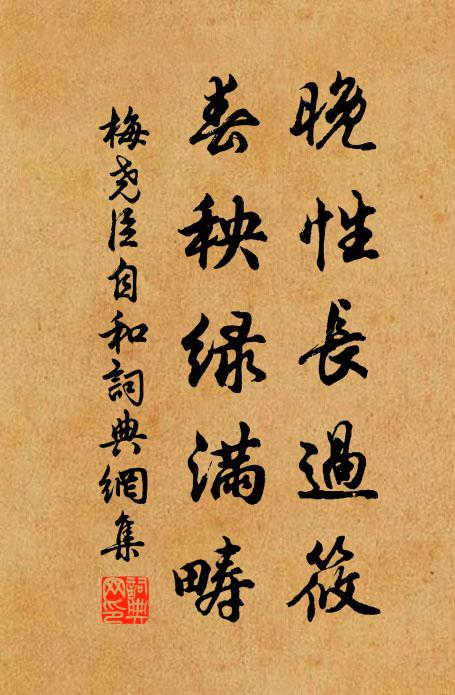 晚性長過筱
春秧绿滿疇
梅尧臣自和詞典網集
詞典网印